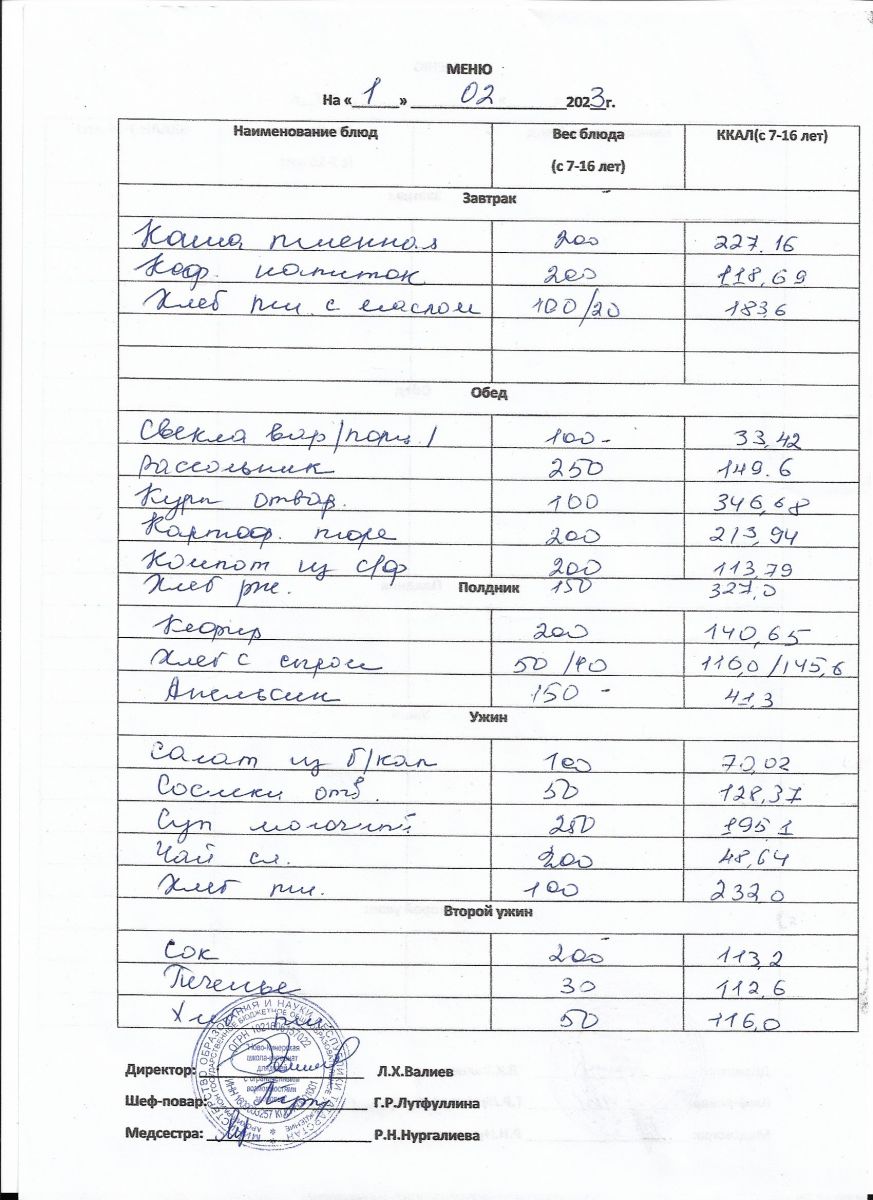 МЕНЮ
На «1» 02 2023г.
Наименование блюд Вес блюда (с 7-16 лет) ККАЛ(с 7-16 лет)
Завтрак
Каша пшенная 200 227.16
Коф. напиток 200 118,69
Хлеб пш. с маслом 100/20 183,6
Обед
Свекла вар/порц/ 100- 33,42
Рассольник 250 149.6
Куры отвар. 100 346,68
Картоф. пюре 200 213,94
Компот из с/ф 200 113,79
Хлеб рж. 150 327,0
Полдник
Кефир 200 140,65
Хлеб с сыром 50/40 116,0/145,6
Апельсин 150 - 41,3
Ужин
Салат из б/кап 100 70,02
Сосиски отв. 50 128,37
Суп молочный 250 195 1
Чай сл. 200 48,64
Хлеб пш. 100 232,0
Второй ужин
Сок 200 113,2
Печенье 30 112,6
Хлеб пш 50 116,0
Директор: Л.Х.Валиев
Шеф-повар: Г.Р.Лутфуллина
Медсестра: Р.Н.Нургалиева